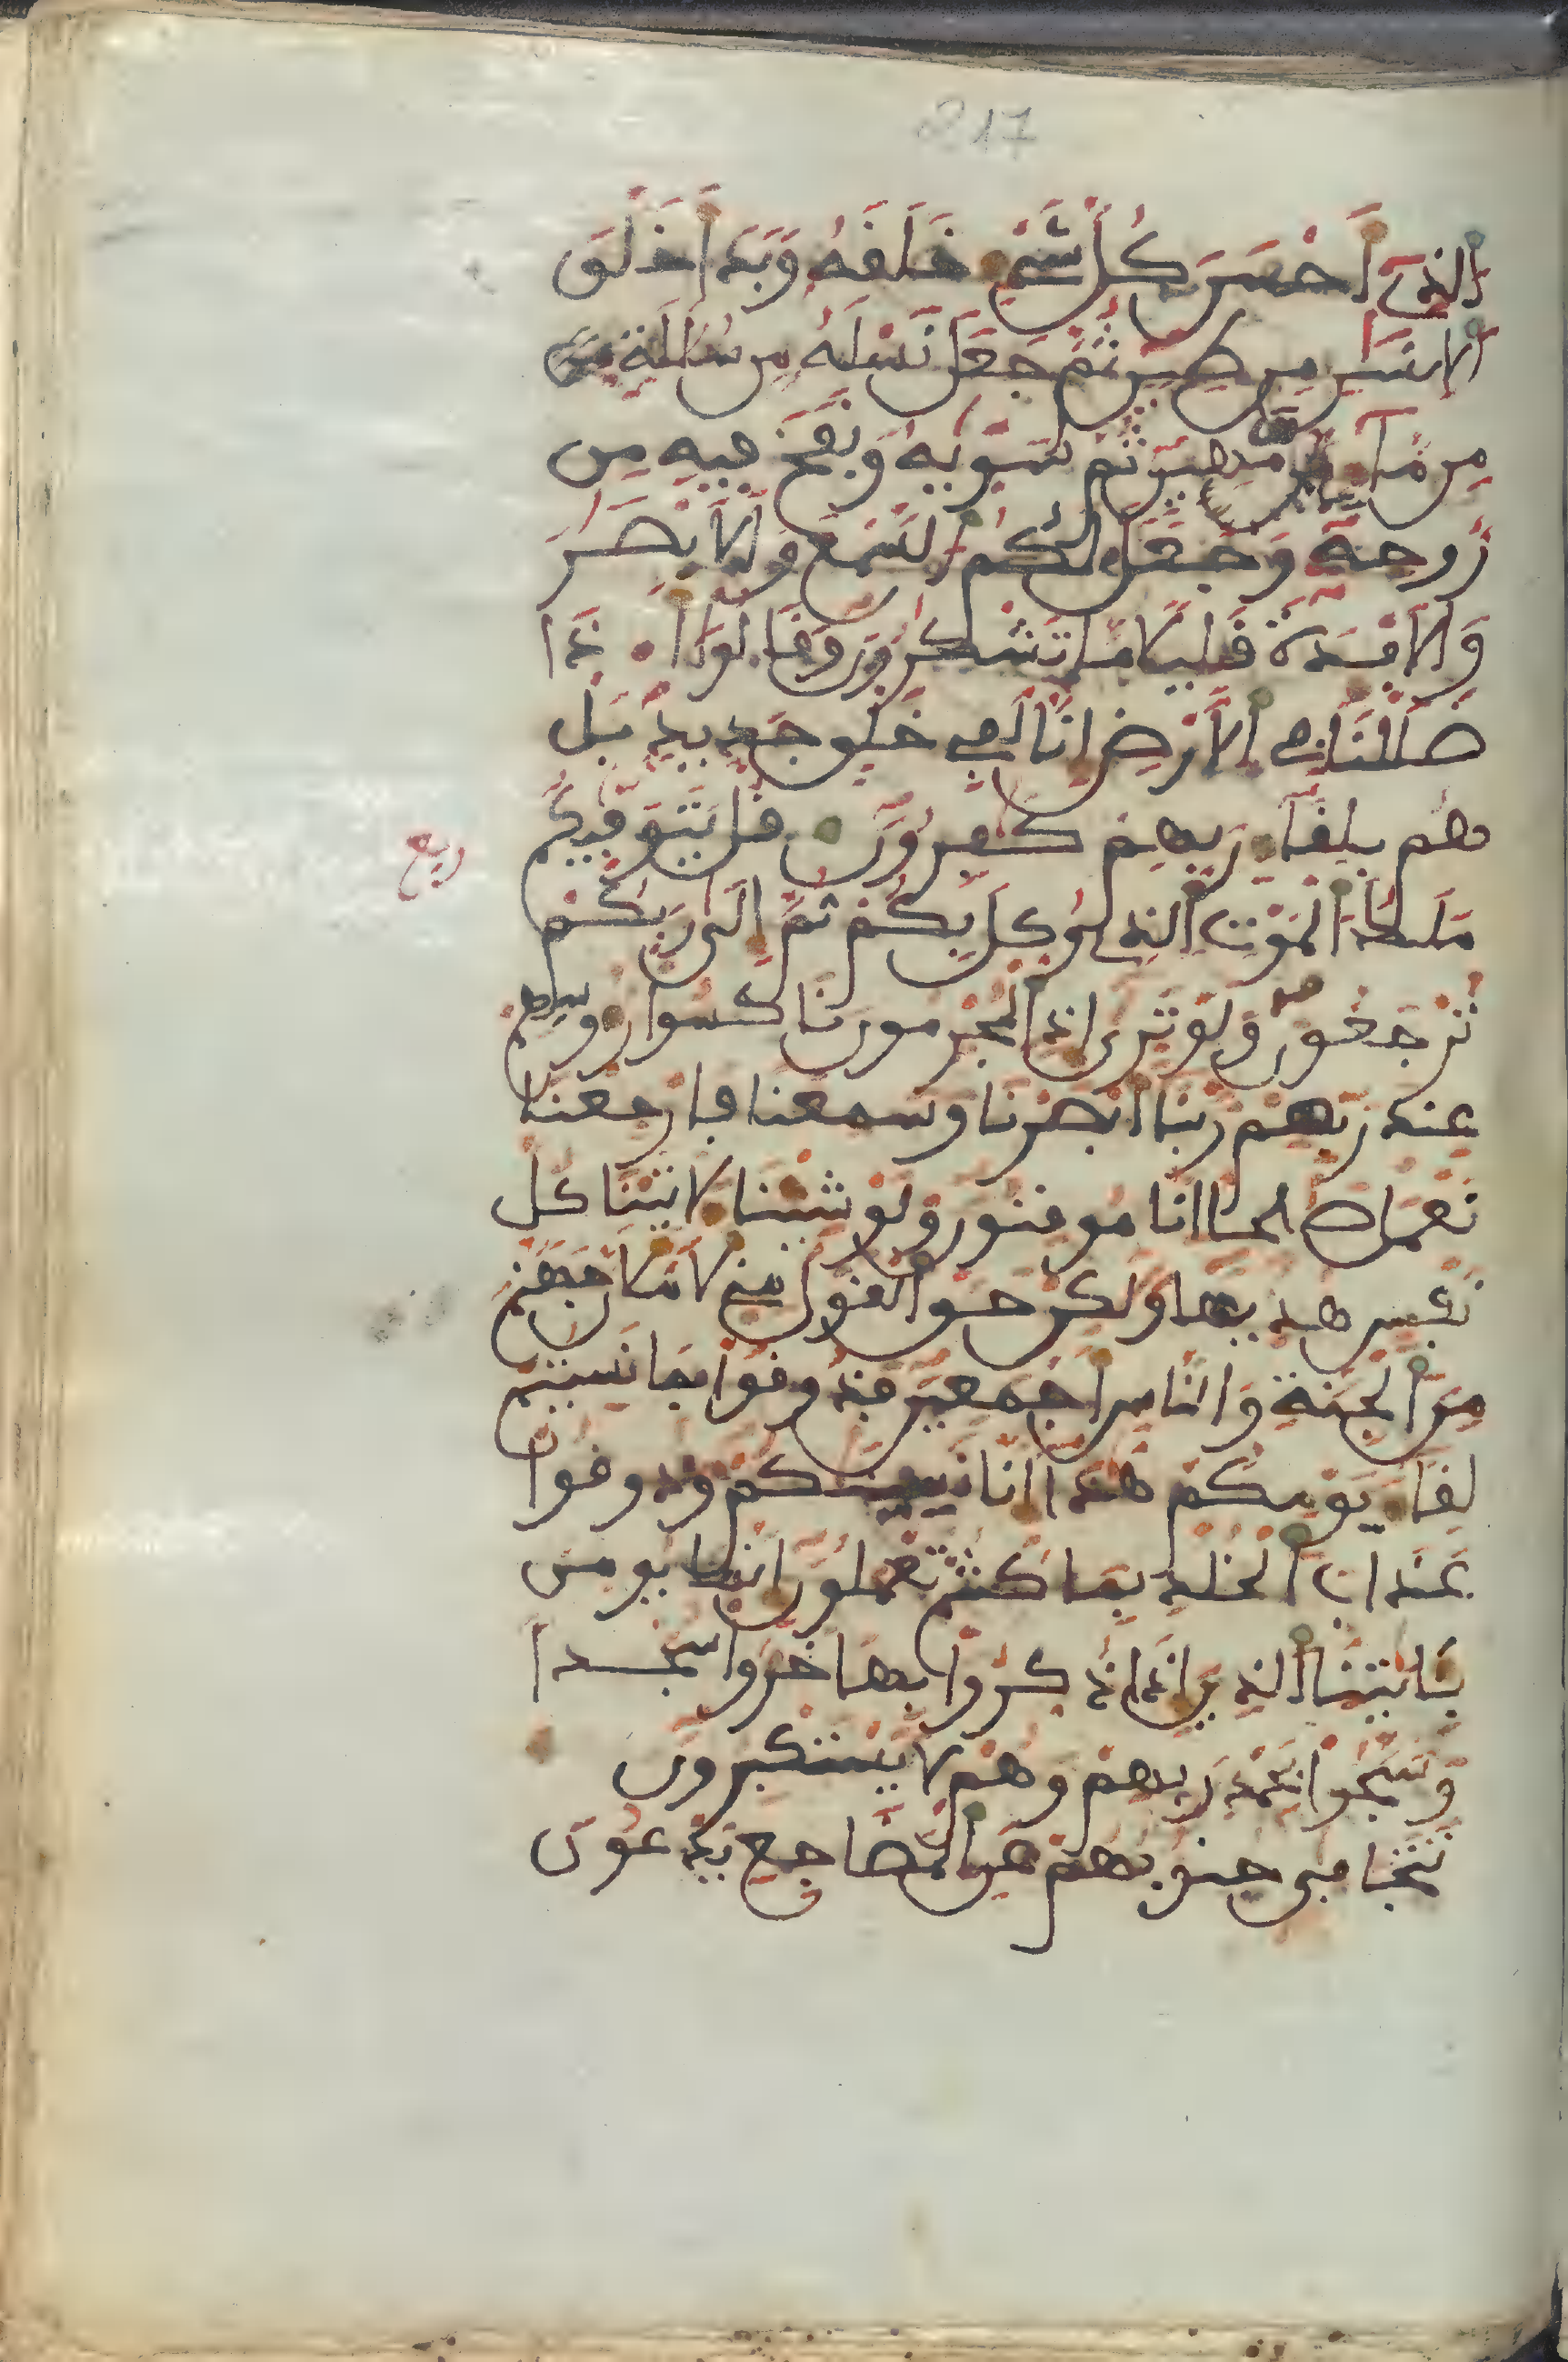 217
الذي أحسن كل شيء خلقه وبدأ خلق
الانسن من طين ثم جعل نسله من سللة من
من ماء مهين ثم سويه ونفخ فيه من
روحه وجعل لكم السمع والابصر
والافدة قليلا ما تشكرون وقالوا أ ذا
ضللنا في الارض انا لفي خلق جديد بل
هم بلقاء ربهم كفرون قل يتوفيكم
ربع
ملك الموت الذي وكل بكم ثم الى ربكم
ترجعون ولو ترى اذ المجرمون ناكسوا روسهم
عند ربهم ربنا ابصرنا وسمعنا فارجعنا
نعمل صلحا انا موقنون ولو شينا لاتينا كل
نفس هديها ولكن حق القول مني لاملان جهنم
من الجنة والناس اجمعين فذوقوا بما نسيتم
لقاء يومكم هذا انا نسينكم وذوقوا
عذاب الخلد بما كنتم تعملون انما يومن
بايتنا الذين اذا ذكروا بها خروا سجدا
وسبحوا بحمد ربهم وهم لا يستكبرون
تتجافى جنوبهم عن المضاجع يدعون